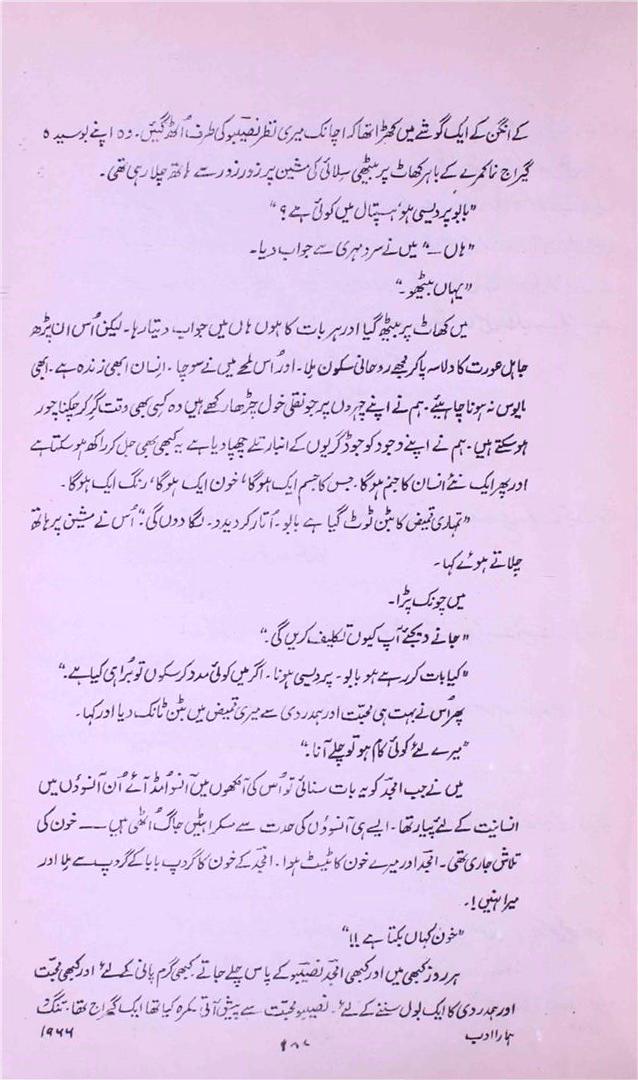 کے انگن کے ایک گوشے میں کھڑا تھا کہ اچانک میری نظر نصیبو کی طرف اُٹھ گئیں۔ وہ اپنے بوسیدہ
گیراج نما کمرے کے باہر کھاٹ پر بیٹھی سلائی کی مشین پر زور زور سے ہاتھ چلا رہی تھی۔
”بابو پردیسی ہو، ہسپتال میں کوئی ہے؟“
”ہاں —“ میں نے سرد مہری سے جواب دیا۔
”یہاں بیٹھو۔“
میں کھاٹ پر بیٹھ گیا اور ہر بات کا ہوں ہاں میں جواب دیتا رہا۔ لیکن اُس ان پڑھ
جاہل عورت کا دلاسہ پا کر مجھے روحانی سکون ملا۔ اور اُس لمحے میں نے سوچا۔ انسان ابھی زندہ ہے۔ ابھی
مایوس نہ ہونا چاہیئے۔ ہم نے اپنے چہروں پر جو نقلی خول چڑھا رکھے ہیں وہ کسی بھی وقت گر کر چکنا چور
ہو سکتے ہیں۔ ہم نے اپنے وجود کو جو ڈگریوں کے انبار تلے چھپا دیا ہے یہ کبھی بھی جل کر راکھ ہو سکتا ہے
اور پھر ایک نئے انسان کا جنم ہوگا۔ جس کا جسم ایک ہوگا، خون ایک ہوگا، رنگ ایک ہوگا۔
”تمہاری قمیض کا بٹن ٹوٹ گیا ہے بابو۔ اُتار کر دیدو۔ لگا دوں گی۔“ اُس نے مشین پر ہاتھ
چلاتے ہوئے کہا۔
میں چونک پڑا۔
”جانے دیجئے آپ کیوں تکلیف کریں گی۔“
”کیا بات کر رہے ہو بابو۔ پردیسی ہونا۔ اگر میں کوئی مدد کر سکوں تو بُرا ہی کیا ہے۔“
پھر اُس نے بہت ہی محبّت اور ہمدردی سے میری قمیض میں بٹن ٹانک دیا اور کہا۔
”میرے لئے کوئی کام ہو تو چلے آنا۔“
میں نے جب امجد کو یہ بات سنائی تو اُس کی آنکھوں میں آنسو اُمڈ آئے اُن آنسوؤں میں
انسانیت کے لئے پیار تھا۔ ایسے ہی آنسوؤں کی حدت سے مسکراہٹیں جاگ اُٹھتی ہیں —— خون کی
تلاش جاری تھی۔ امجد اور میرے خون کا ٹیسٹ ہوا۔ امجد کے خون کا گروپ بابا کے گروپ سے ملا اور
میرا نہیں!۔
”خون کہاں بکتا ہے!!“
ہر روز کبھی میں اور کبھی امجد نصیبو کے پاس چلے جاتے کبھی گرم پانی کے لئے اور کبھی محبّت
اور ہمدردی کا ایک بول سننے کے لئے۔ نصیبو محبّت سے پیش آتی۔ کمرہ کیا تھا ایک گیراج تھا۔ تنگ و
ہمارا ادب
۱۹۶۶